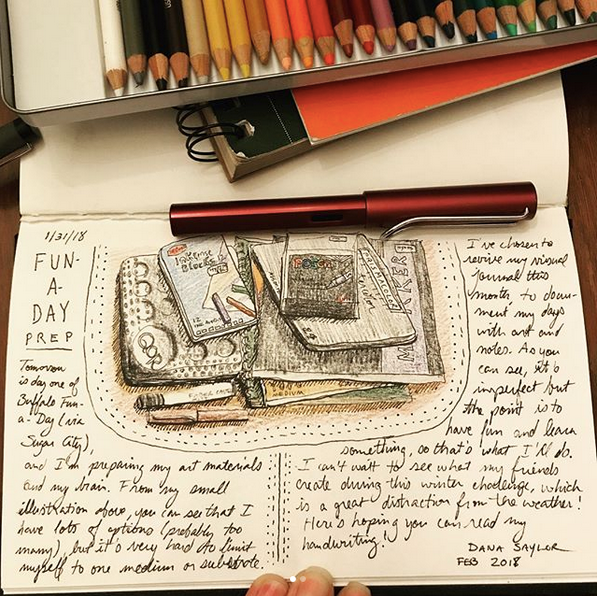 1/31/18
FUN-
A-
DAY
PREP
Tomorrow
is day one of
Buffalo Fun-
a-Day (via
Sugar City),
and I'm preparing my art materials
and my brain. From my small
illustration above, you can see that I
have lots of options (probably too
many), but it's very hard to limit
myself to one medium or substrate.
Inktense
Blocks
12
POSCA
MARKER
MEDIUM
I've chosen to
revive my visual
journal this
month, to docu-
ment my days
with art and
notes. As you
can see, it's
imperfect but
the point is to
have fun and learn
something, so that's what I'll do.
I can't wait to see what my friends
create during this winter challenge, which
is a great distraction from the weather!
Here's hoping you can read my
handwriting!
DANA SAYLOR
FEB 2018